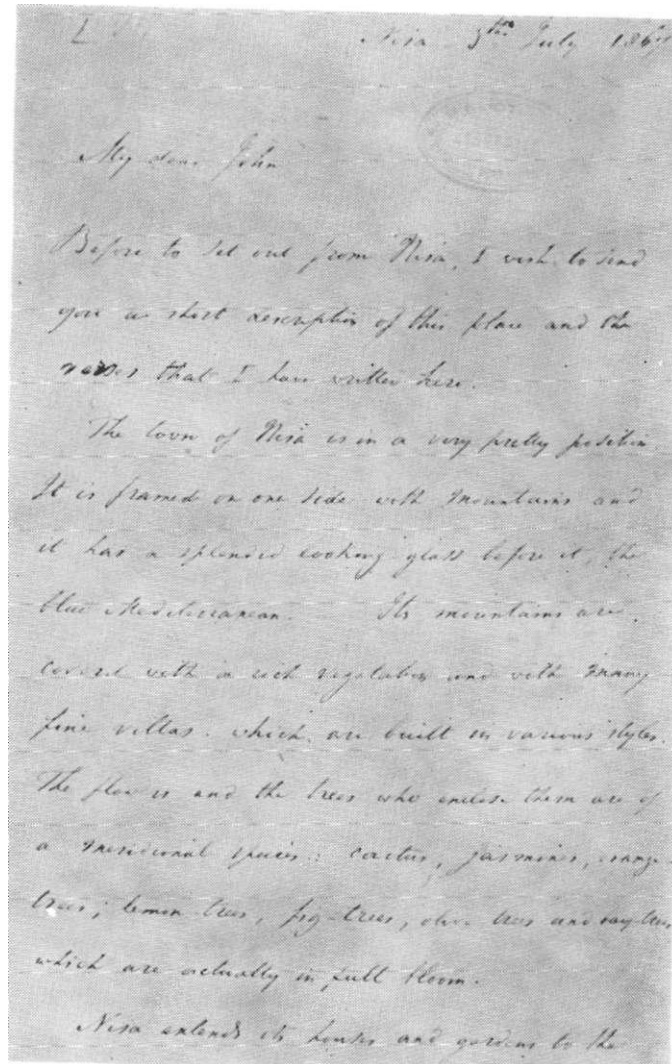 Nisa 3th July 186
My dear John
Before to set out from Nisa, I wish to send
you a short description of this place and the
verses that I have written here.
The town of Nisa is in a very pretty position
It is framed on one side with mountains and
it has a splended looking glass before it, the
blue Mediterranean. Its mountains are
covered with a rich vegetation and with many
fine villas. which are built in various styles.
The flowers and the trees who enclose them are of
a meridional species: cactus, jasmines, orange
trees; lemon trees, fig-trees, olive trees and
which are actually in full bloom.
Nisa extends its houses and gardens to the